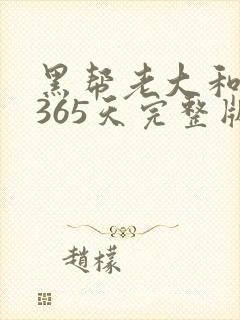 黑帮老大和
365天完整版
趙檬